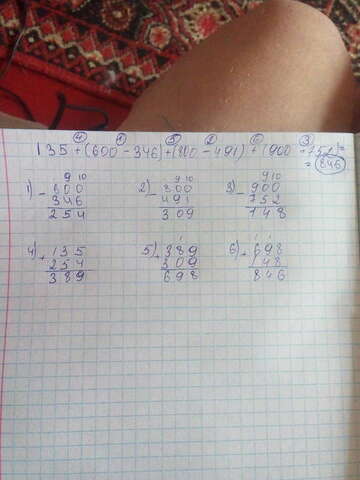 ④ ① ⑤ ② ⑥ ③
135 + (600 - 346) + (800 - 491) + (900 - 752) =
= 846
9 10 9 10 9 10
1) - 600 2) - 800 3) - 900
346 491 752
254 309 148
4) + 135 5) + 389 6) + 698
254 309 148
389 698 846